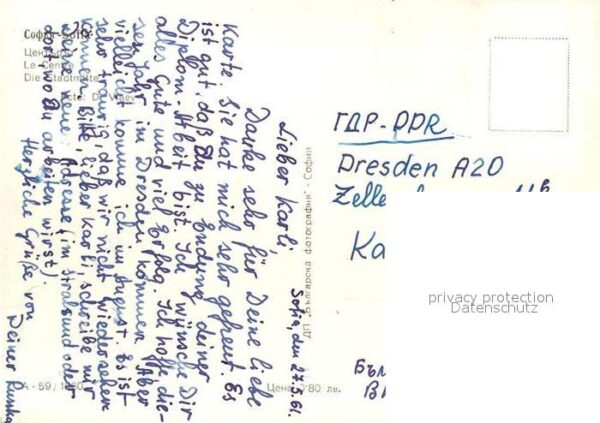 София-Sofia
Центърът
Le Centre
Die Stadtmitte
А-59/1960
Цена 0'80 лв.
ДП "Българска фотография" - София
Sofia, den 27.5.61.
Lieber Karli,
Danke sehr für Deine liebe
Karte. Sie hat mich sehr gefreut. Es
ist gut, daß Du zu Endung deiner
Diplom-Arbeit bist. Ich wünsche Dir
alles Gute und viel Erfolg. Ich hoffe, die-
ses Jahr im Dresden können. Aber
vielleicht komme ich im August. Es ist
sehr traurig, daß wir nicht wiedersehen
können. Bitte, lieber Karli, schreibe mir
deine neue Adresse (im Stralsund oder
dort, wo Du arbeiten wirst).
Herzliche Grüße von
Deiner
ГДР-DDR
Dresden A20
Ka
privacy protection
Datenschutz